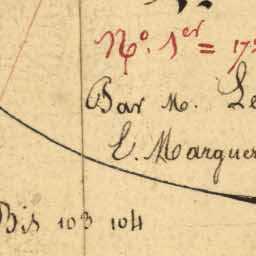 No. 1er = 17
Bar M. Le
L. Marguer
Bis 103 104